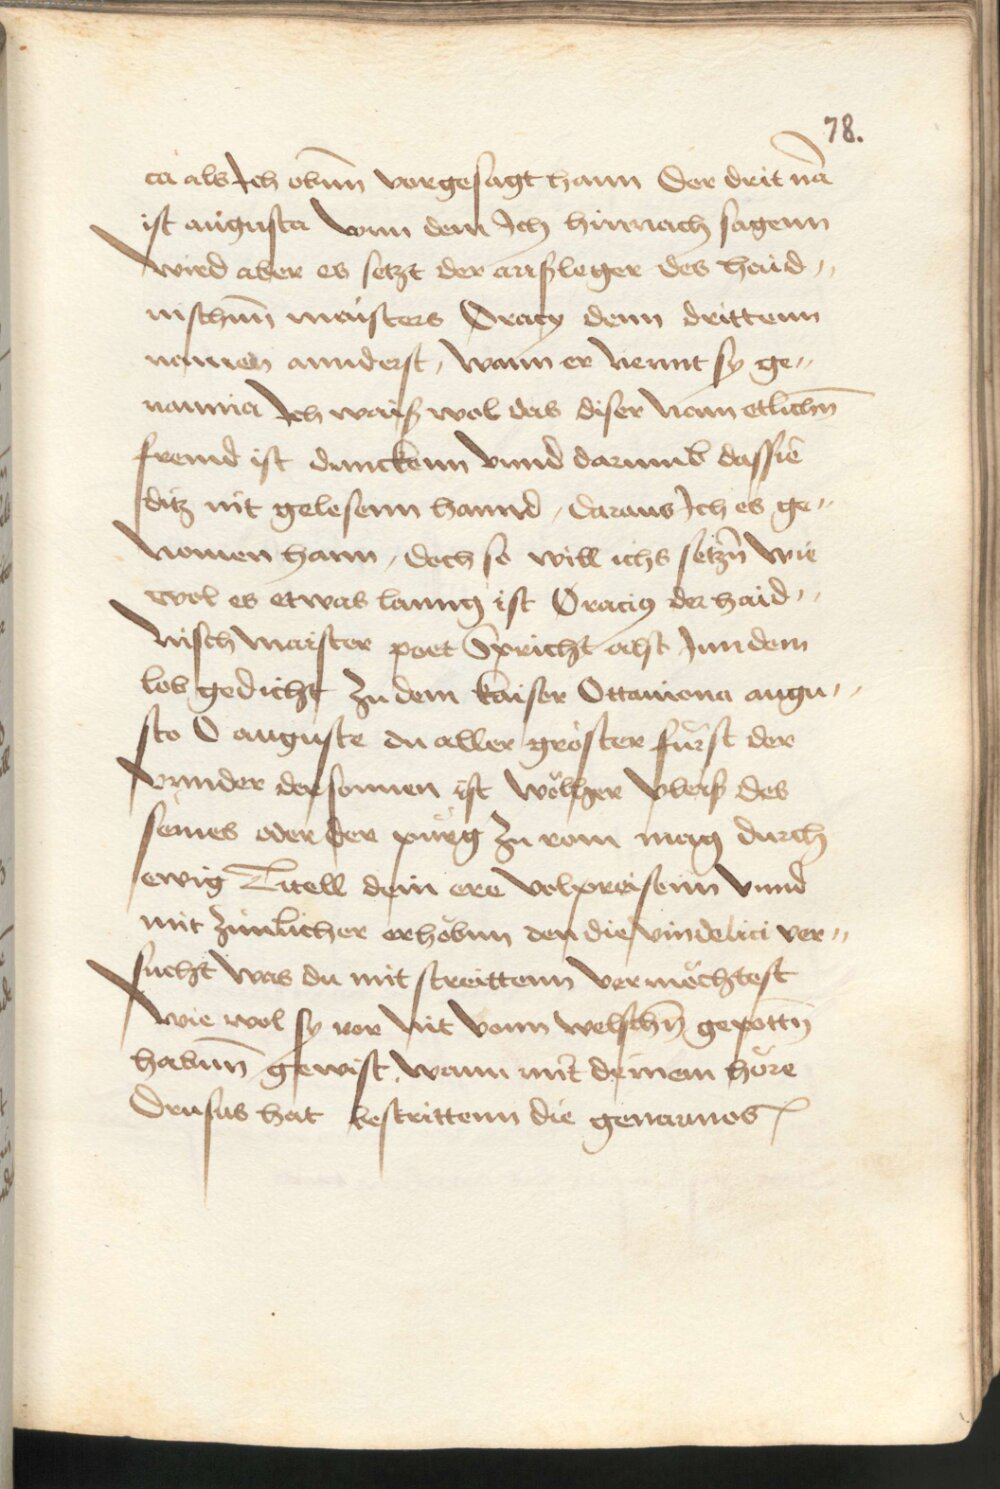 78.
ca als Ich obenn̄ vorgesagt hann Der drit nā
ist augusta vonn dem Ich hinnach sagenn
wird aber es setzt der aüßleger des haid„
nischenn̄ maisters Oracy denn drittenn
namen annderst, wann er nennt sy ge„
nauma Ich waiß wol das diser nam etlichn̄
fremd ist dunckenn vnnd darumb dassie
ditz nit gelesenn hannd, daraus Ich es ge„
nomen hann, doch so will ichs setzn̄ wie
wol es etwas lanng ist Oracius der haid„
nisch maister poet Spricht also Inn dem
lob gedicht zu dem kaiser Ottaniona augu„
sto O auguste du aller gröster fürst der
vnnder der sonnen ist wölher vleiß des
semes oder der pürg zu rom mag durch
ewig Titell dein ere volpreisenn vnnd
mit zimlicher erhöbnn den die vindelici ver„
sucht was du mit streittenn vermöchtest
wie wol sy vor nit vonn welschn̄ gepottn̄
habenn̄ gewist, wann mit deinem höre
Drusus hat bestrittenn die genaunos